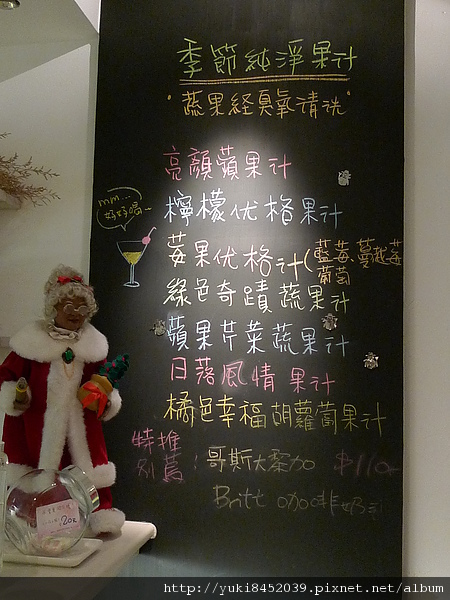 季節純淨果汁
"蔬果経臭氧清洗"
亮顏蘋果汁
mm...
好好喝~
檸檬优格果汁
莓果优格汁(藍莓、蔓越莓
葡萄
綠色奇蹟蔬果汁
蘋果芹菜蔬果汁
日落風情果汁
橘色幸福胡蘿蔔果汁
特推
別薦：哥斯大黎加 $110
Britt 咖啡
120元
http://yuki8452039.pixnet.net/album